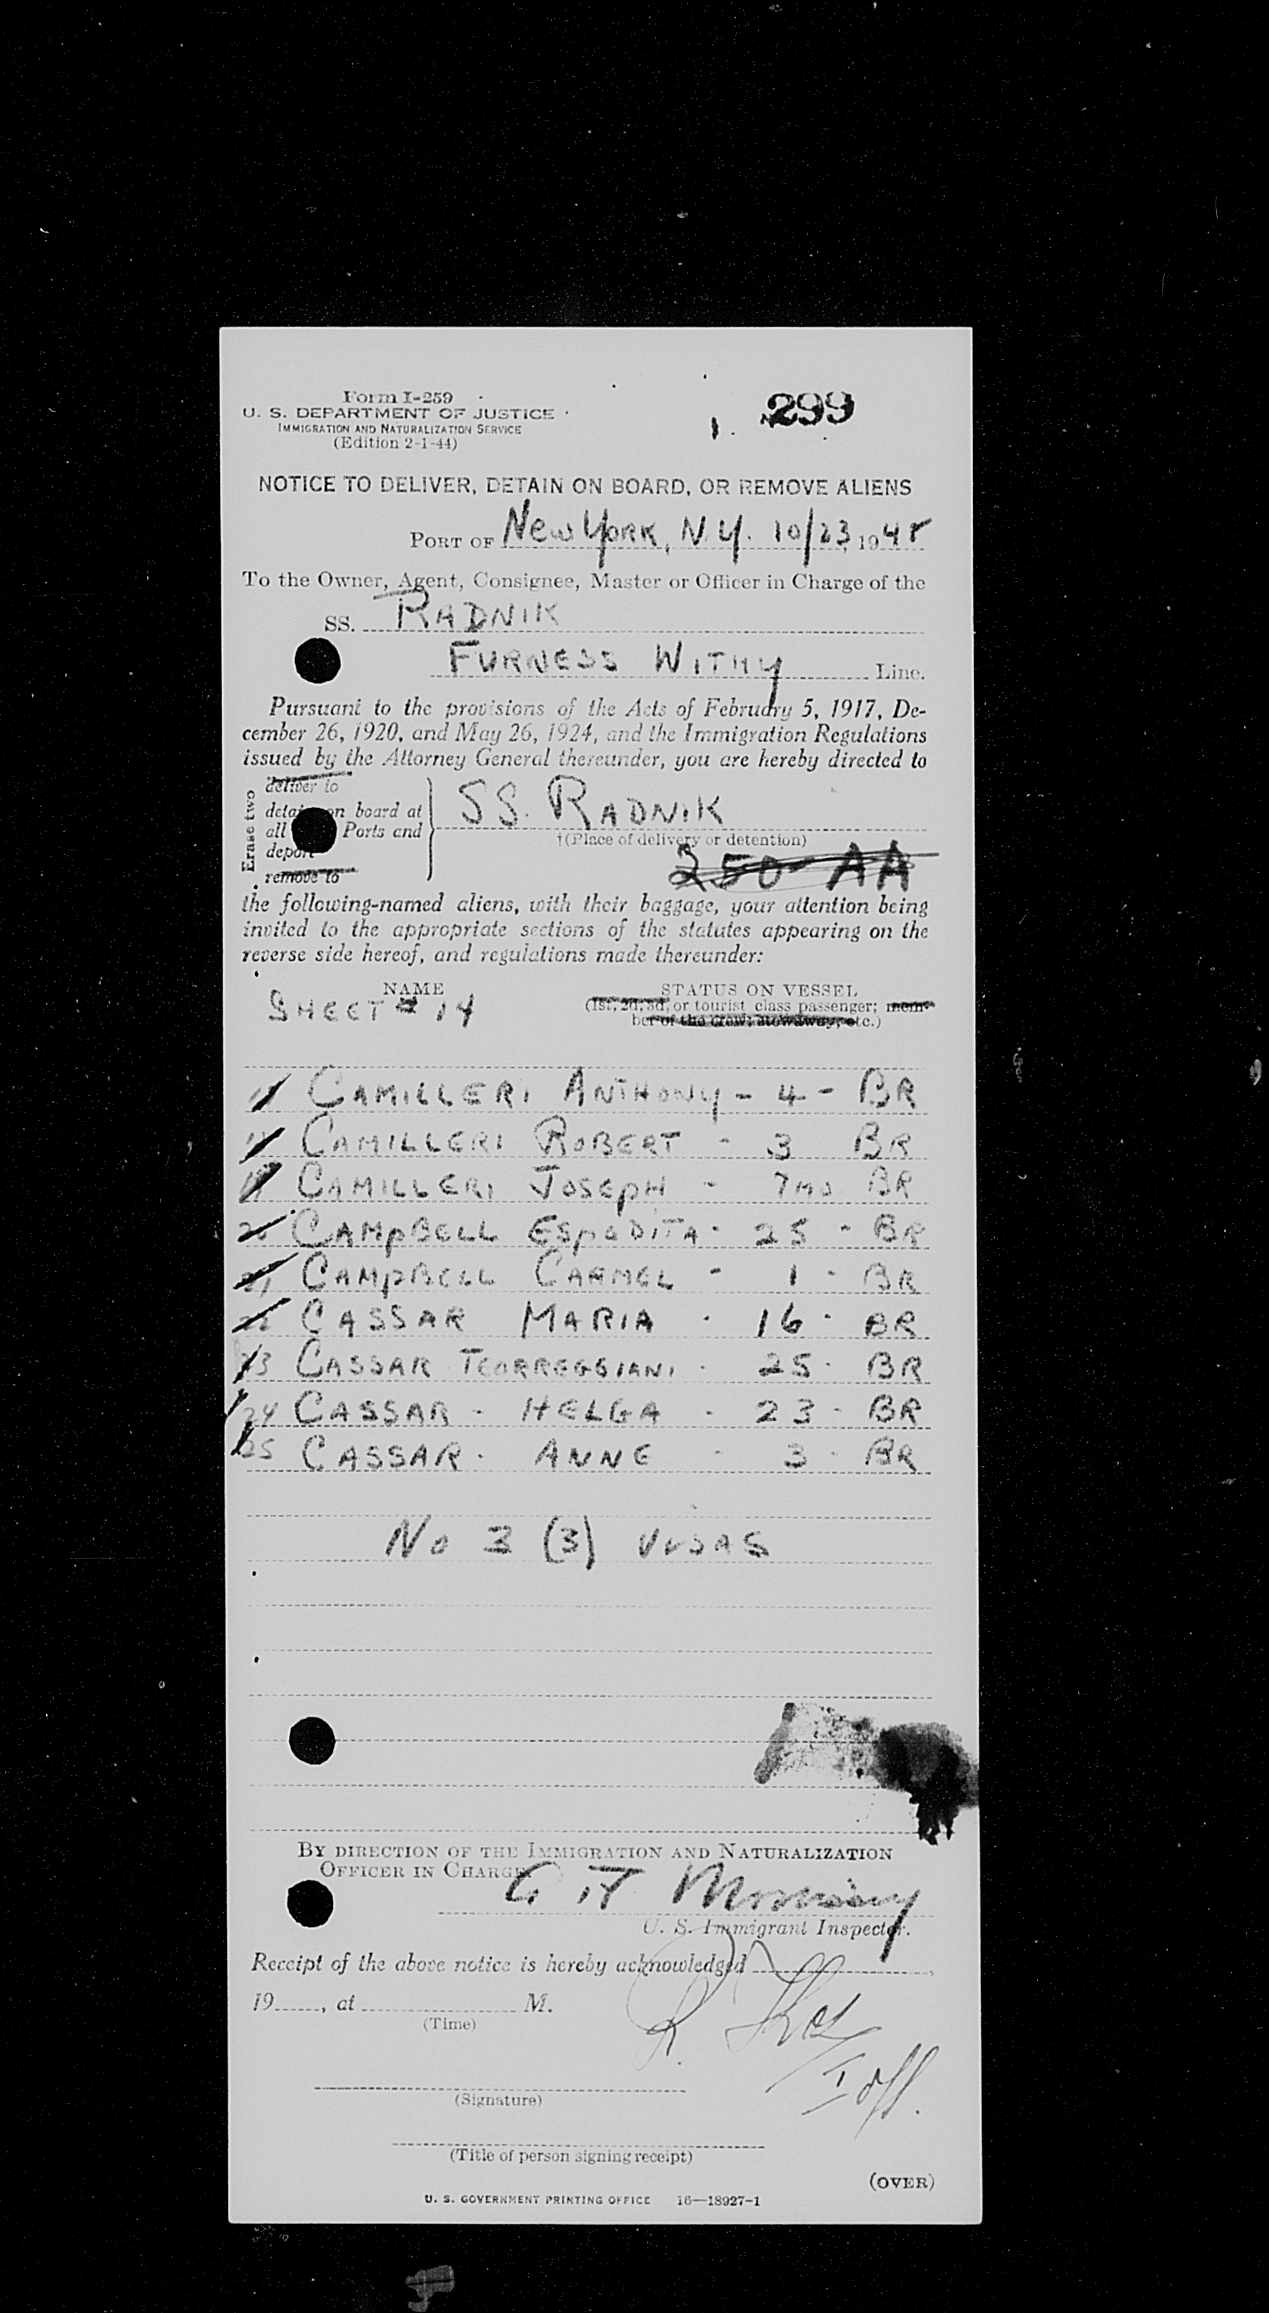 Form I-259
U. S. DEPARTMENT OF JUSTICE
IMMIGRATION AND NATURALIZATION SERVICE
(Edition 2-1-44)
299
NOTICE TO DELIVER, DETAIN ON BOARD, OR REMOVE ALIENS
PORT OF New York, N.Y. 10/23, 1948
To the Owner, Agent, Consignee, Master or Officer in Charge of the
SS. RADNIK
FURNESS WITHY Line.
Pursuant to the provisions of the Acts of February 5, 1917, De-
cember 26, 1920, and May 26, 1924, and the Immigration Regulations
issued by the Attorney General thereunder, you are hereby directed to
Erase two
deliver to
detain on board at
all Ports and
deport
remove to
SS. RADNIK
†(Place of delivery or detention)
250 AA
the following-named aliens, with their baggage, your attention being
invited to the appropriate sections of the statutes appearing on the
reverse side hereof, and regulations made thereunder:
NAME STATUS ON VESSEL
SHEET # 14 (1st, 2d, 3d, or tourist class passenger; mem-
ber of the crew; stowaway, etc.)
CAMILLERI ANTHONY - 4 - BR
CAMILLERI ROBERT - 3 BR
CAMILLERI JOSEPH - 7 MO BR
CAMPBELL ESPEDITA - 25 - BR
21 CAMPBELL CARMEL - 1 - BR
CASSAR MARIA - 16 - BR
23 CASSAR - 25 - BR
24 CASSAR - HELGA - 23 - BR
25 CASSAR - ANNE - 3 - BR
NO 3 (3) VISAS
BY DIRECTION OF THE IMMIGRATION AND NATURALIZATION
OFFICER IN CHARGE
U. S. Immigrant Inspector.
Receipt of the above notice is hereby acknowledged
19 , at M.
(Time)
I off.
(Signature)
(Title of person signing receipt)
(OVER)
U. S. GOVERNMENT PRINTING OFFICE 16—18927-1